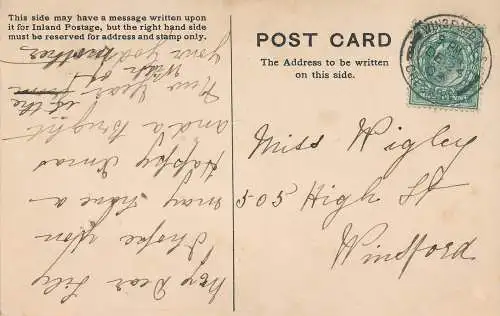 This side may have a message written upon
it for Inland Postage, but the right hand side
must be reserved for address and stamp only.
My Dear Lily
I hope you
may have a
Happy Xmas
and a Bright
New Year
is the
wish of
your Godmother
POST CARD
The Address to be written
on this side.
Miss Wigley
505 High St
Winsford